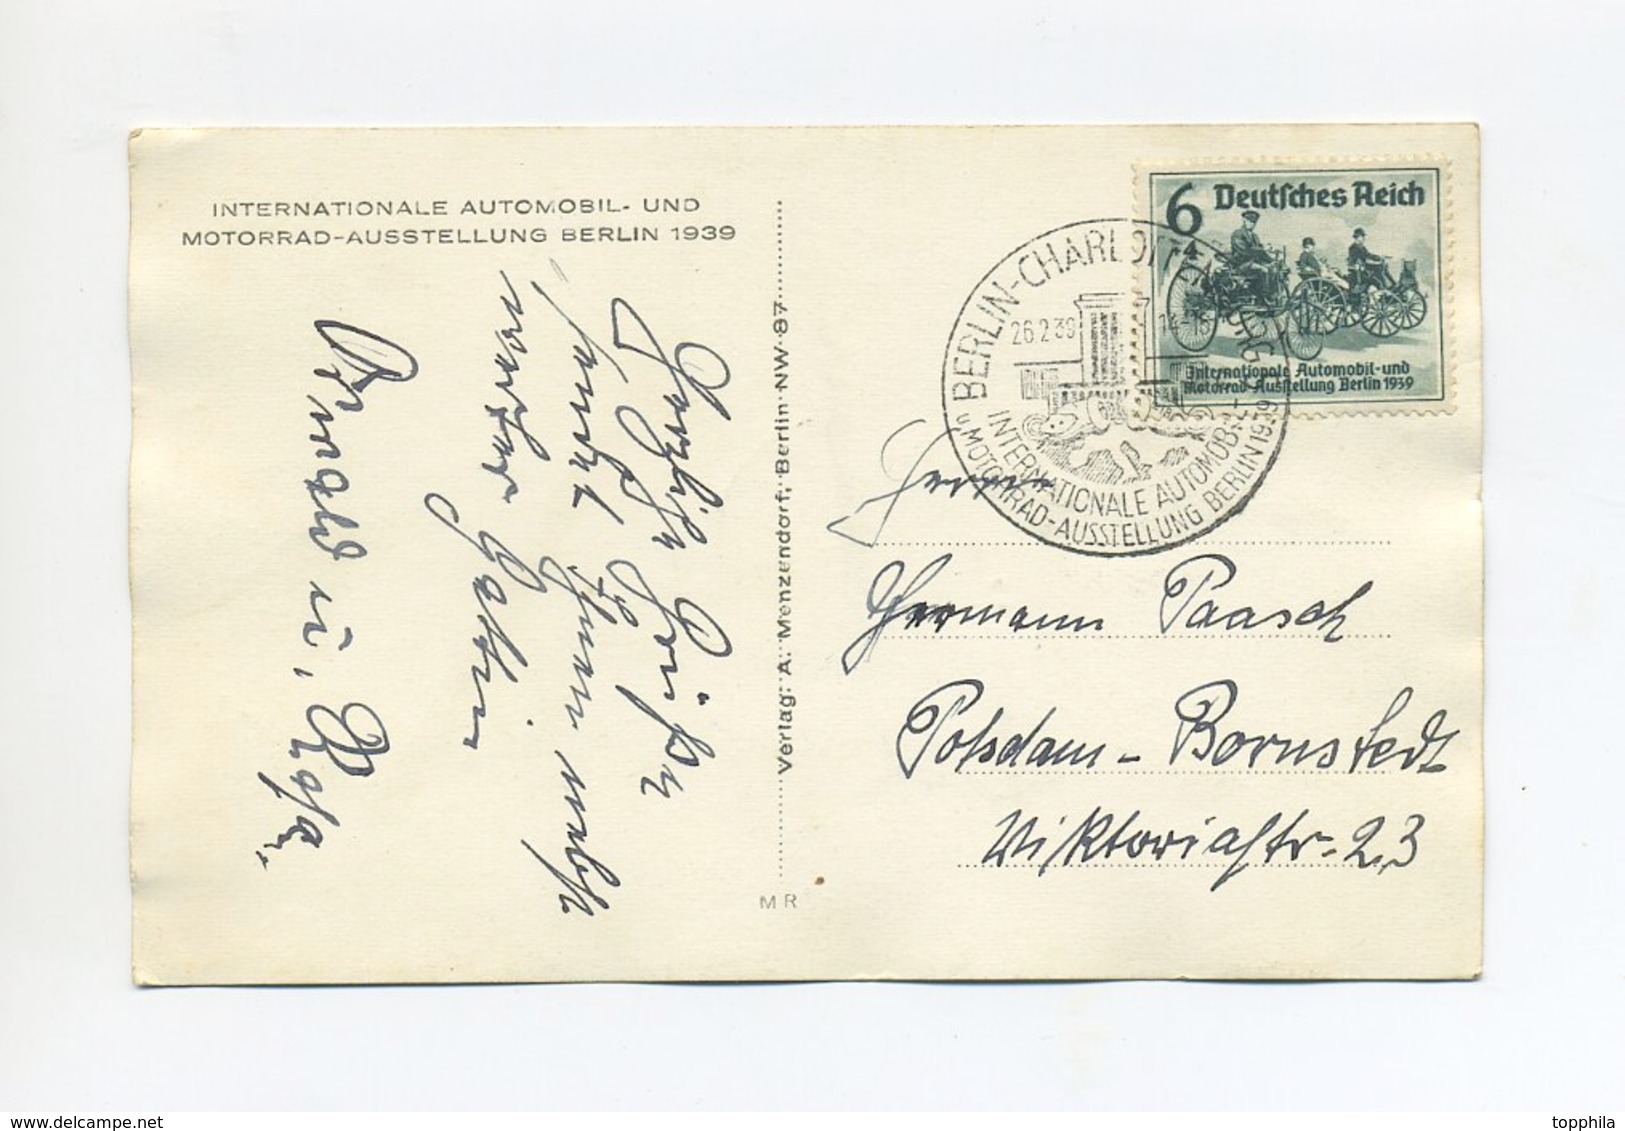 INTERNATIONALE AUTOMOBIL- UND
MOTORRAD-AUSSTELLUNG BERLIN 1939
Herzliche Grüße
sendet Ihnen nebst
werter Gattin
Verlag: A. Menzendorf, Berlin NW 87
M R
6+4 Deutsches Reich
Internationale Automobil-und
Motorrad-Ausstellung Berlin 1939
BERLIN-CHARLOTTENBURG
26.2.39 14-15
INTERNATIONALE AUTOMOBIL-
u. MOTORRAD-AUSSTELLUNG BERLIN 1939
Herrn
Hermann Paasch
Potsdam-Bornstedt
Viktoriastr. 23
topphila